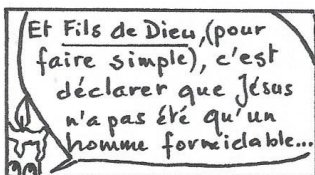 Et Fils de Dieu, (pour
faire simple), c'est
déclarer que Jésus
n'a pas été qu'un
homme formidable...